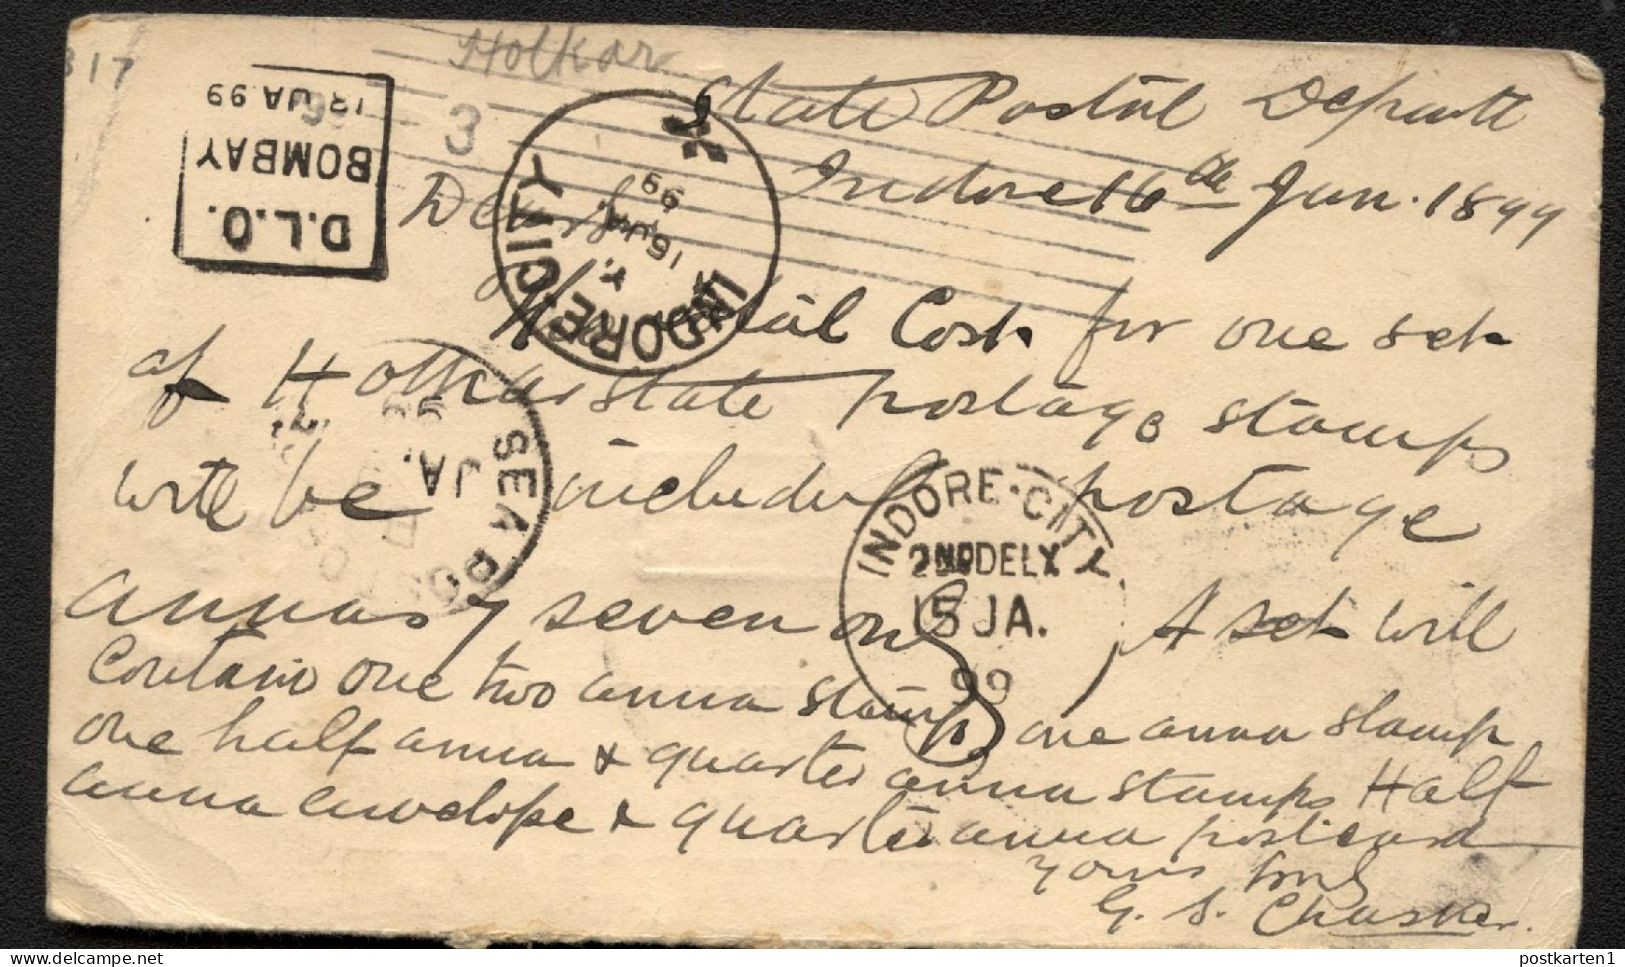 317
Holkar
3
State Postal Departt
Indore 16th Jan. 1899
Dear Sir
Cost for one set
of Holkar State postage stamps
will be including postage
annas 7 seven only A set will
Contain one two anna stamp, one anna stamp
one half anna & quarter anna stamps Half
anna envelope & quarter anna postcard
yours truly
G. S.
D.L.O.
BOMBAY
JA 99
INDORE CITY
16 JA.
99
SEA PO
JA.
INDORE·CITY
2ND DELY
15 JA.
99
postkarten1